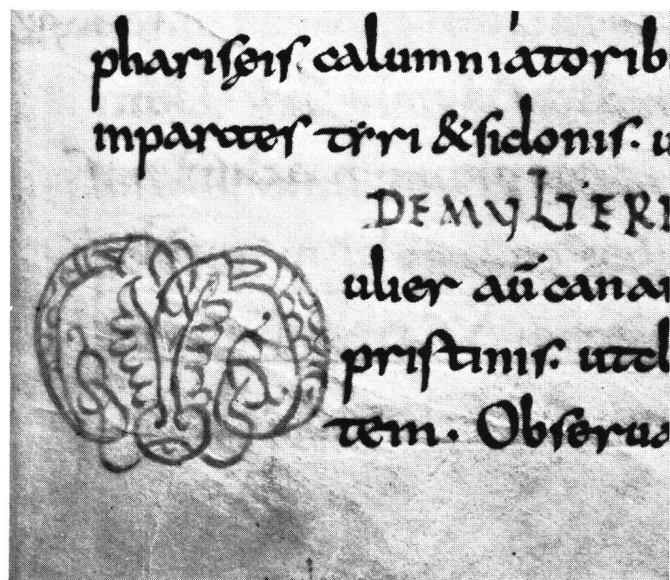 phariseis. calumniatorib
inpartes tyri & sidonis. u
DE MULIERI
ulier aū canan
pristinis. utel
tem. Obserua